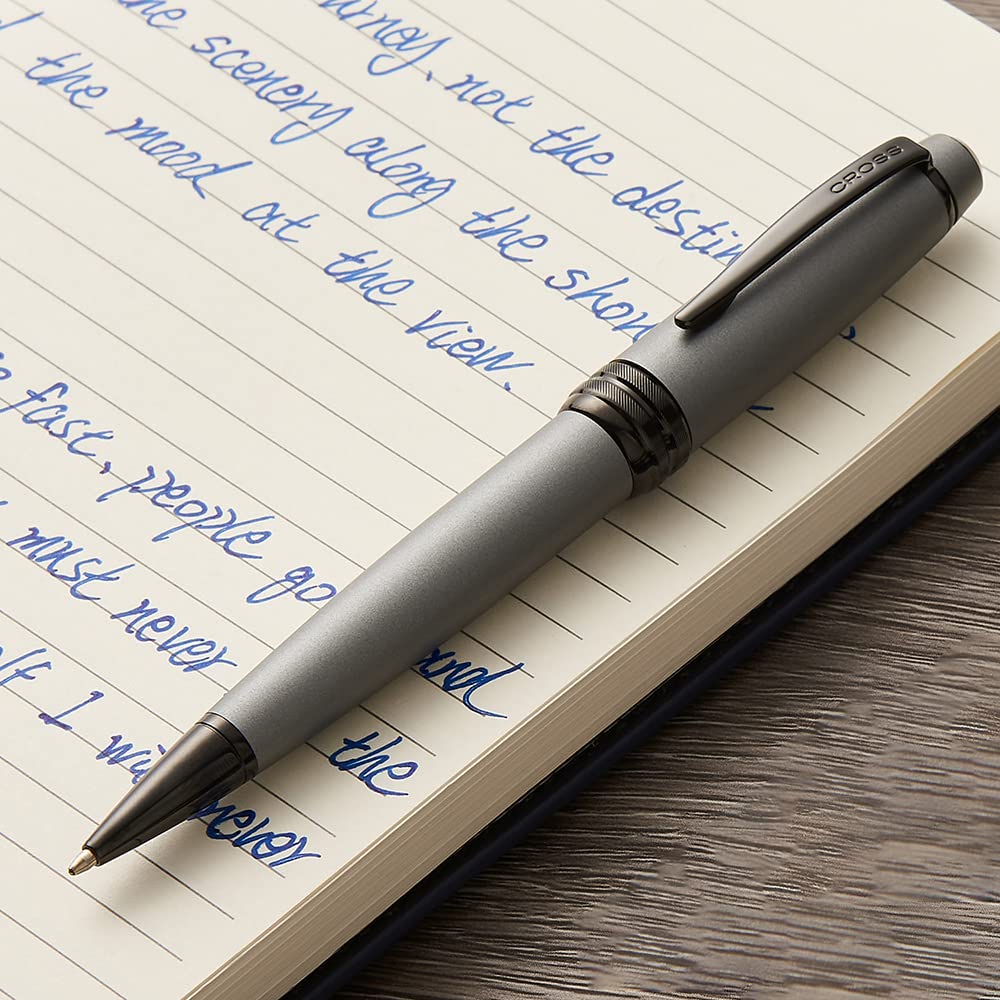 not the destin
the scenery along the shor
the mood at the view.
fast, people go
must never and
I will never the
never
CROSS